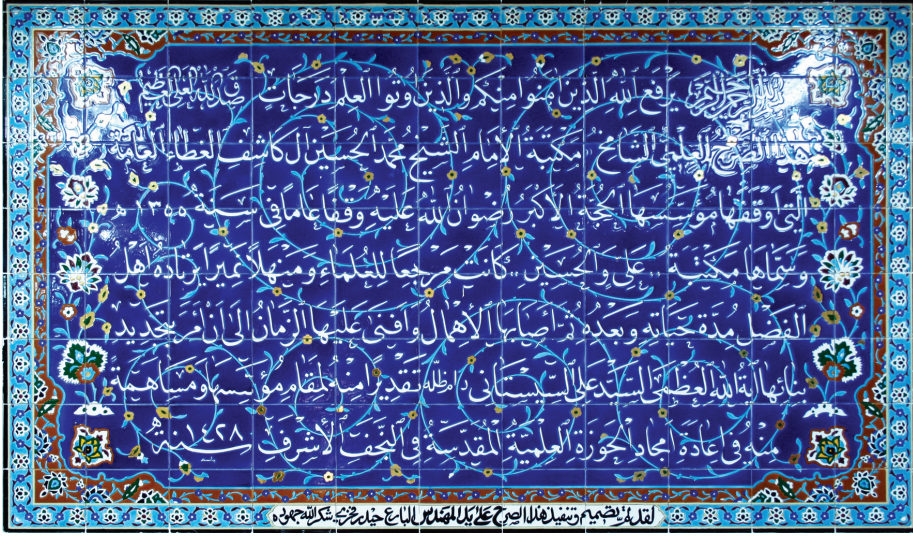 بسم الله الرحمن الرحيم يرفع الله الذين آمنوا منكم والذين أوتوا العلم درجات صدق الله العلي العظيم
هذا الصرح العلمي الشامخ مكتبة الإمام الشيخ محمد الحسين آل كاشف الغطاء العامة
التي أوقفها مؤسسها الحجة الأكبر رضوان الله عليه وقفاً عاماً في سنة ١٣٥٥ هـ
وسماها مكتبة .. علي والحسين .. كانت مرجعاً للعلماء ومنهلاً نميراً يرتاده أهل
الفضل مدة حياته وبعده ثم أصابها الإهمال وأفنى عليها الزمان إلى أن أمر بتجديد
بنائها آية الله العظمى السيد علي السيستاني دام ظله تقديراً منه لمقام مؤسسها ومساهمة
منه في إعادة أمجاد الحوزة العلمية المقدسة في النجف الأشرف سنة ١٤٢٨ هـ
لقد تم تصميم وتنفيذ هذا الصرح على يد المهندس البارع حيدر فخري شكر الله جهوده